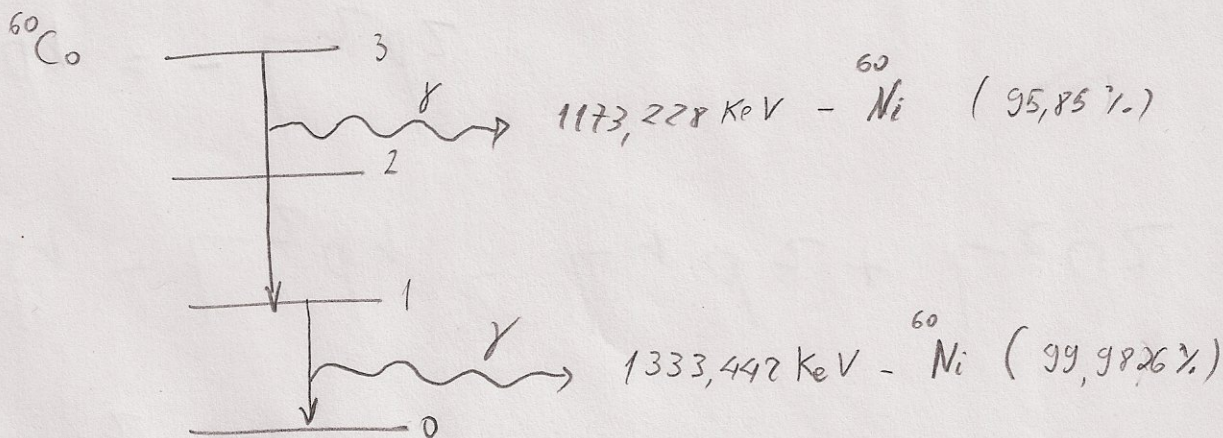 ⁶⁰Co
3
γ 1173,228 KeV - ⁶⁰Ni (95,85 %)
2
1
γ 1333,442 KeV - ⁶⁰Ni (99,9826 %)
0